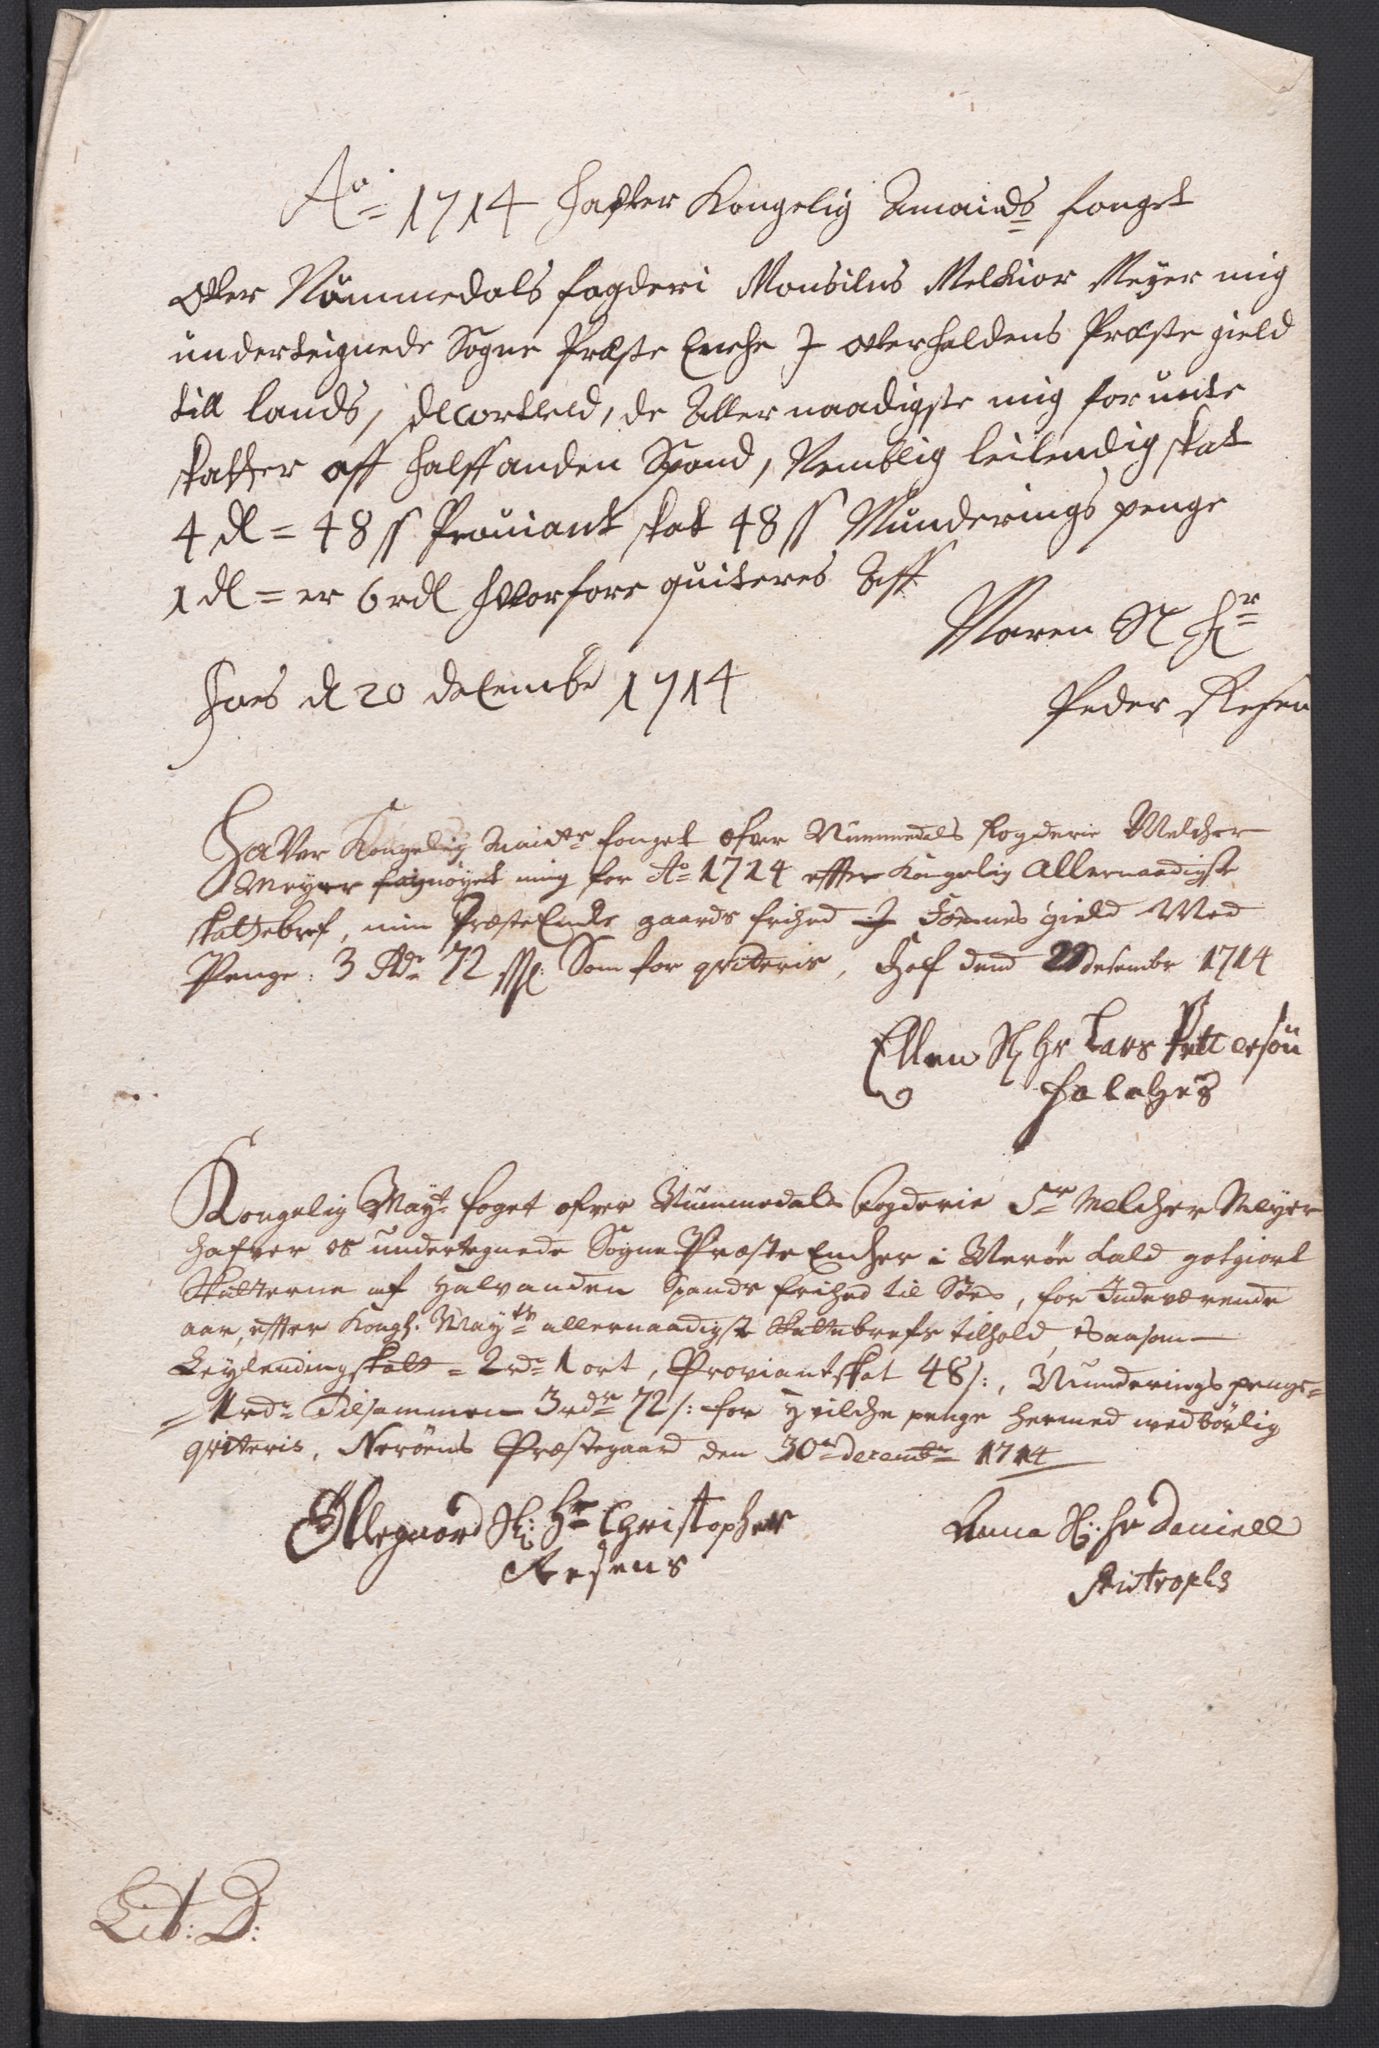 Ao = 1714 hafver Kongelig Amaieds fouget
ofver Nommedals fogderi Monsiius Melkior Meÿer mig
underteignede Sogne Præste Enche J ofverhaldens Præste gield
till lands, decorterd, de Aller naadigste mig forunte
skatter aff halffanden Spand, Nemblig leilendig skat
4 dl = 48 ss Proviant skat 48 ss Munderings penge
1 dl = er 6 rdl hvorfore quiteres Aff
Maren Sl Hr
Peder Resen
Foes d 20 december 1714
Haver Kongelig Maiets fouget ofver Nummedals fogderie Melcher
Meyer fornøyet mig for Ao 1714 effter Kongelig Allernaadigste
skattebref, min Præste Enke gaards frihed J Foznes gield Med
Penge: 3 Rdr 72 sk: Som for qviteris, Hof dend 29 desembr 1714
Ellen Sl Hr Lars Pettersøn
Falches
Kongelig Mayts foget ofver Nummedals Fogderie Sr Melcher Meyer
hafver os undertegnede Sogne Præste Encher i Nerøe Kald gotgiort
Skatterne af halvanden Spands frihed til Søes, for Indeværende
aar, efter Kongl. Mayts allernaadigste Skattebrefs tilhold, Saasom
Leylendingskatt = 2 rdr 1 ort, Proviantskat 48 s:, Munderings penge =
= 1 rdr Tilsammen 3 rdr 72 s: for hvilche penge hermed wedbørlig
qviteris, Nerøens Præstegaard den 30te decembr 1714
Øllegaard Sl: Hr Christopher
Resens
Anna Sl: Hr Daniell
Bistrups
Lit: D: